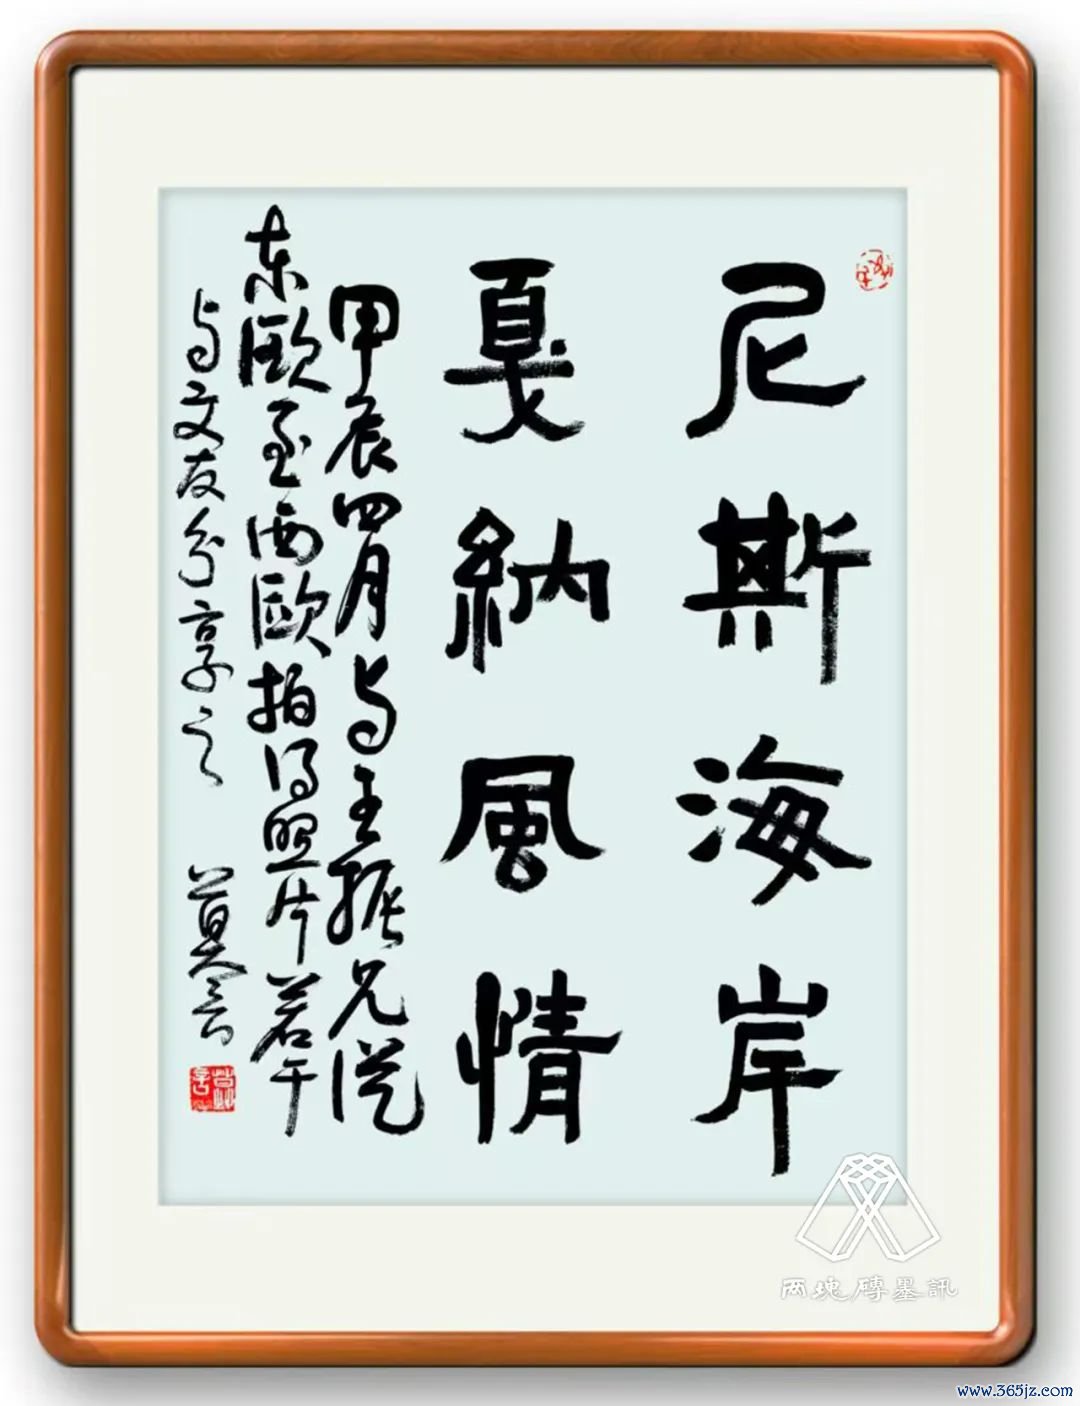 尼斯海岸
戛納風情
甲辰四月与王振兄従
东歐至西歐拍得照片若干
与文友分享之 莫言
莫言
两塊磚墨訊
www.365jz.com